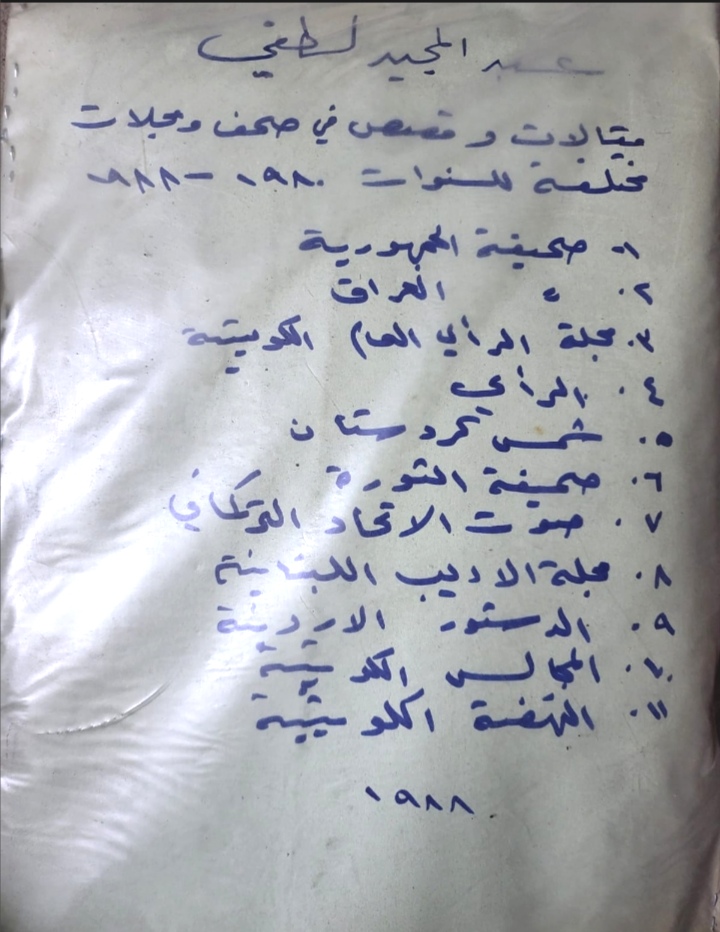 عبد المجيد لطفي
مقالات و قصص في صحف ومجلات
مختلفة للسنوات ١٩٨٠ - ١٩٨٨
١. صحيفة الجمهورية
٢. " العراق
٣. مجلة الرأي العام الكويتية
٤. الرأي
٥. شمس كردستان
٦. صحيفة الثورة
٧. صوت الاتحاد التركماني
٨. مجلة الاديب اللبنانية
٩. الدستور الاردنية
١٠. المجالس الكويتية
١١. النهضة الكويتية
١٩٨٨